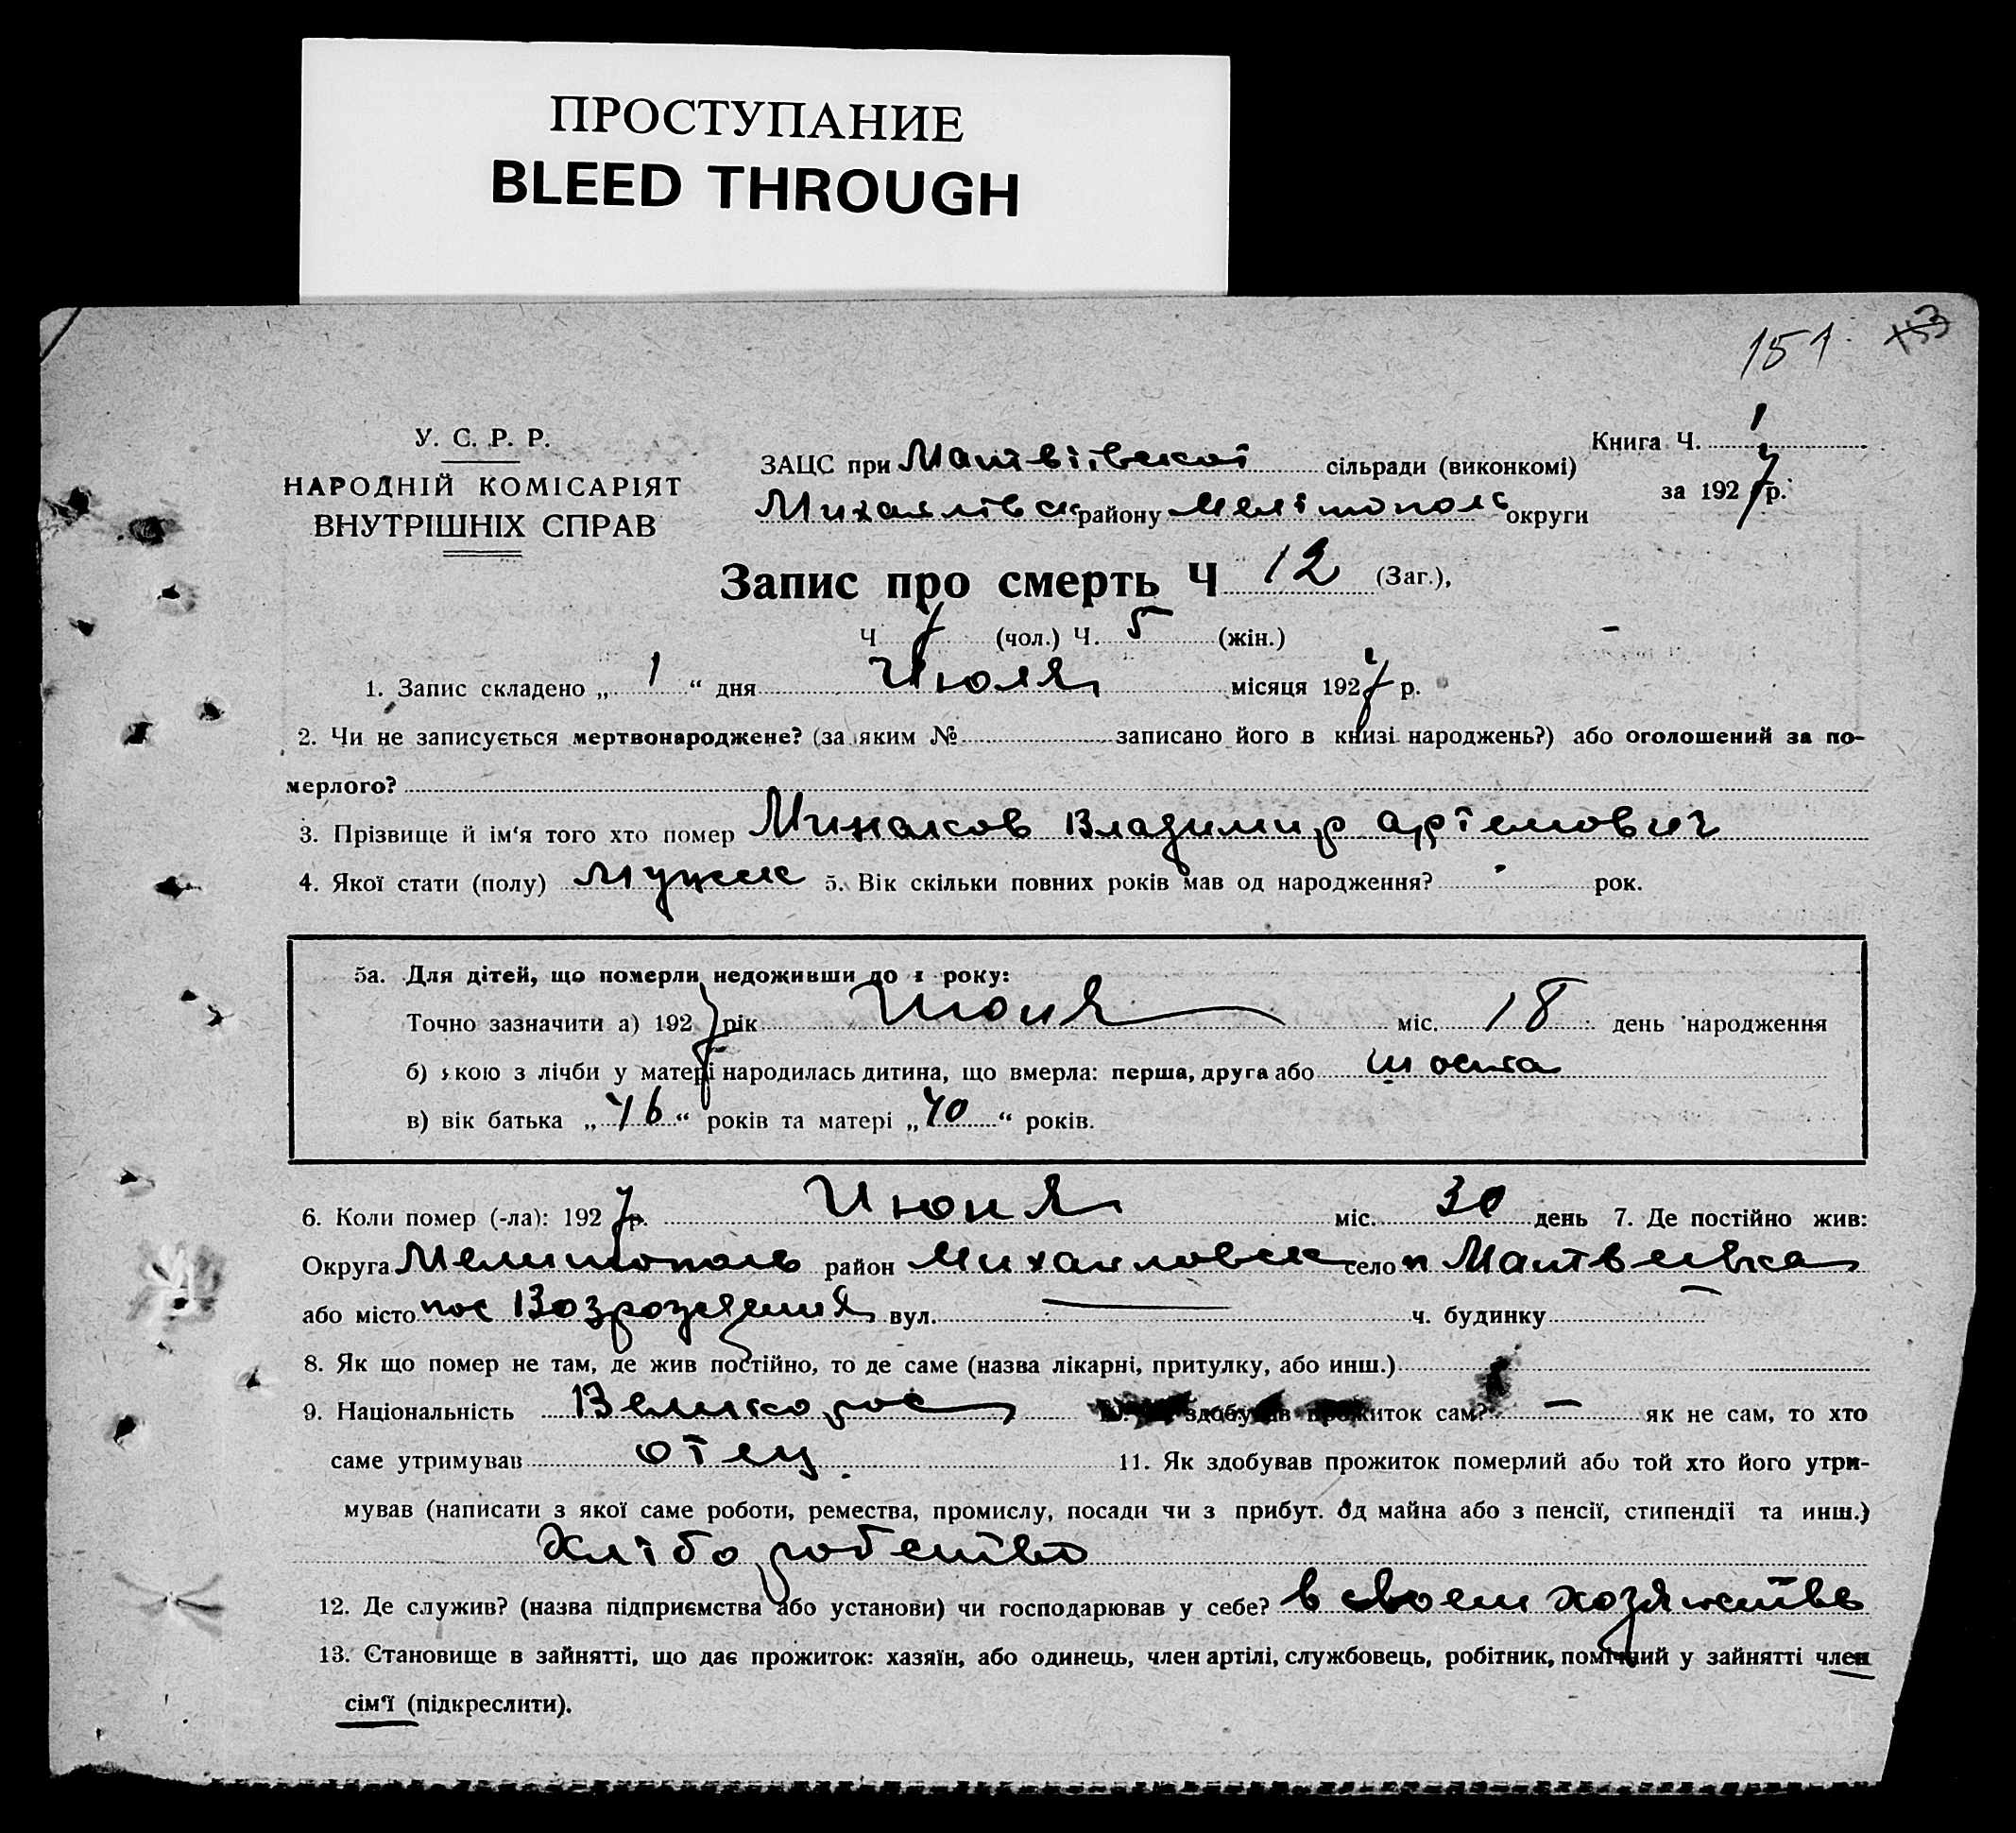 ПРОСТУПАНИЕ
BLEED THROUGH
151 153
У. С. Р. Р.
НАРОДНІЙ КОМІСАРІЯТ
ВНУТРІШНІХ СПРАВ
ЗАЦС при Матвіівськоі сільради (виконкомі)
Михайлівск району Мелітополь округи
Книга Ч. 1
за 1927 р.
Запис про смерть Ч 12 (Заг.),
Ч 7 (чол.) Ч. 5 (жін.)
1. Запис складено „ 1 “ дня Июля місяця 1927 р.
2. Чи не записується мертвонароджене? (за яким № записано його в книзі народжень?) або оголошений за по-
мерлого?
3. Прізвище й ім'я того хто помер Минаков Владимир Артемович
4. Якої стати (полу) мужск 5. Вік скільки повних років мав од народження? рок.
5а. Для дітей, що померли недоживши до 1 року:
Точно зазначити а) 1927 рік Июня міс. 18 день народження
б) якою з лічби у матері народилась дитина, що вмерла: перша, друга або шоста
в) вік батька „ 46 “ років та матері „ 40 “ років.
6. Коли помер (-ла): 1927 р. Июня міс. 30 день 7. Де постійно жив:
Округа Мелитополь район Михайловск село п Матвеевка
або місто пос Возрождения вул. — ч. будинку —
8. Як що помер не там, де жив постійно, то де саме (назва лікарні, притулку, або инш.)
9. Національність Великорос здобував прожиток сам? — як не сам, то хто
саме утримував отец 11. Як здобував прожиток померлий або той хто його утри-
мував (написати з якої саме роботи, ремества, промислу, посади чи з прибут. од майна або з пенсії, стипендії та инш.)
Хлібороб‌ство
12. Де служив? (назва підприємства або установи) чи господарював у себе? в своем хозяйстве
13. Становище в зайнятті, що дає прожиток: хазяїн, або одинець, член артілі, службовець, робітник, помічний у зайнятті член
сім'ї (підкреслити).